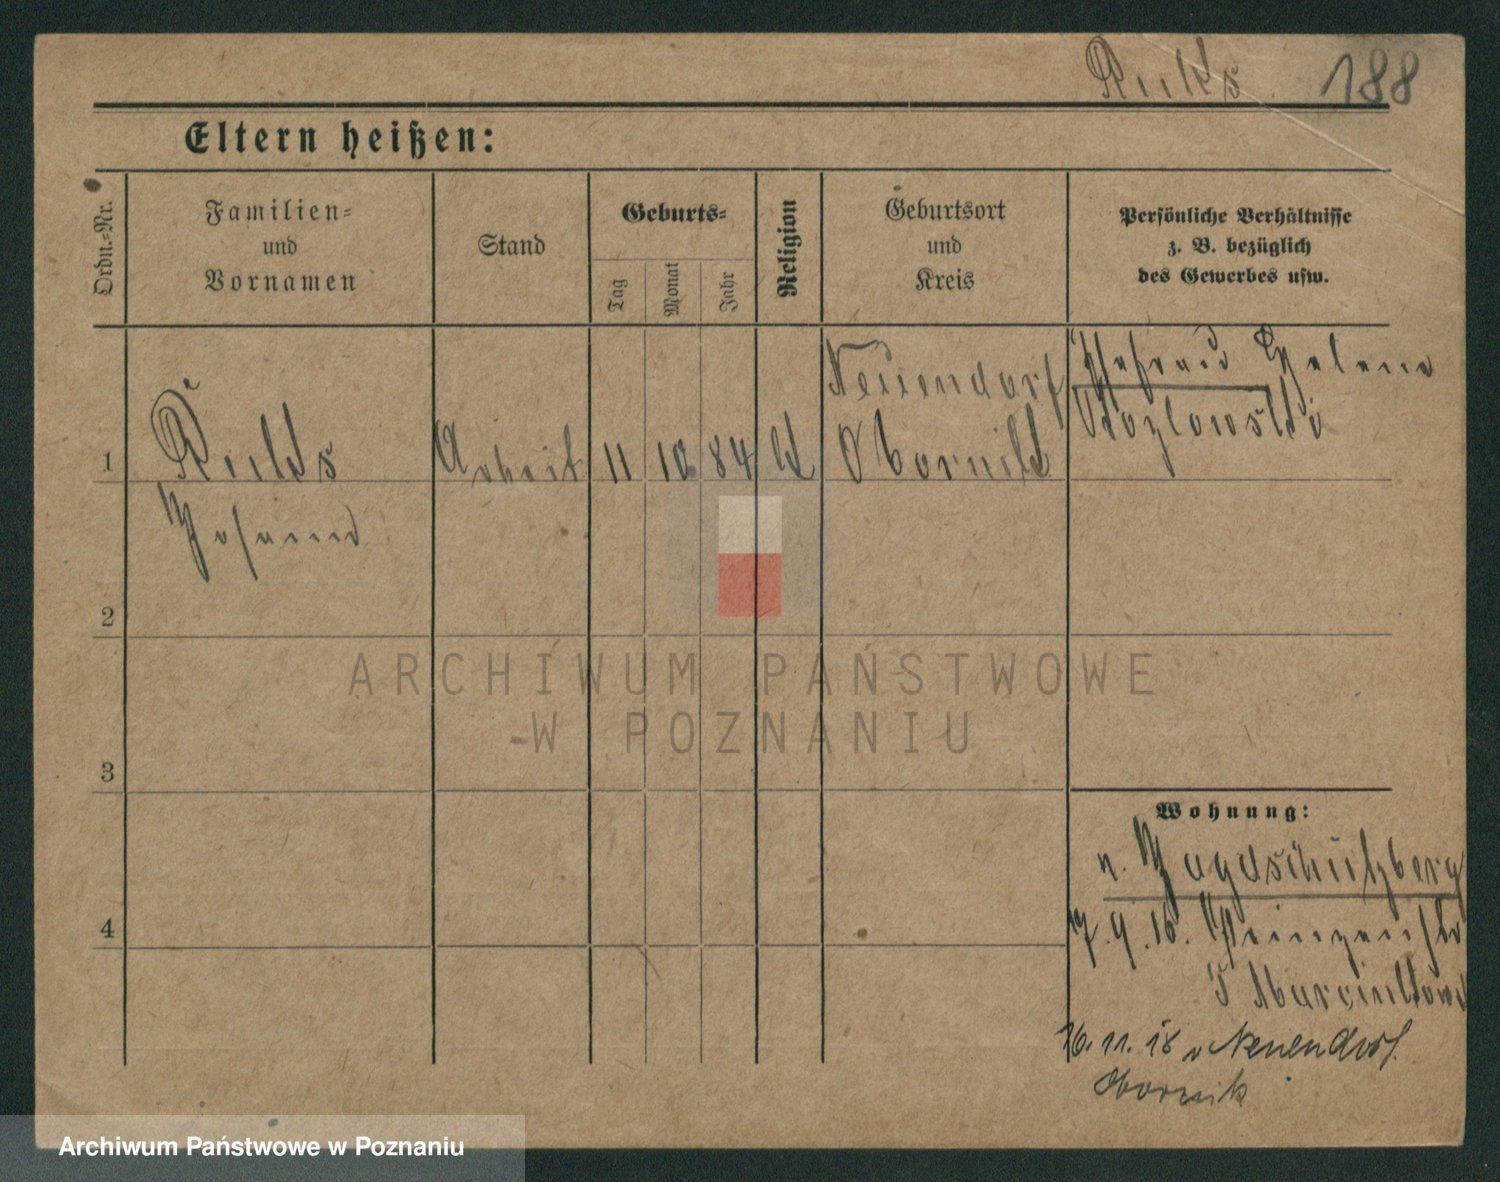 188
Eltern heißen:
Ordn.-Nr.
Familien-
und
Vornamen
Stand
Geburts-
Tag
Monat
Jahr
Religion
Geburtsort
und
Kreis
Persönliche Verhältnisse
z. B. bezüglich
des Gewerbes usw.
1
Arbeit
11
10
84
Neuendorf
Obornik
Ehefrau Helene
Kozlowski
Johann
2
3
4
Wohnung:
n. Jagdschützberg
9. 16. Prinzenstr
26. 11. 18 n Neuendorf.
Obornik
ARCHIWUM PAŃSTWOWE
W POZNANIU
Archiwum Państwowe w Poznaniu